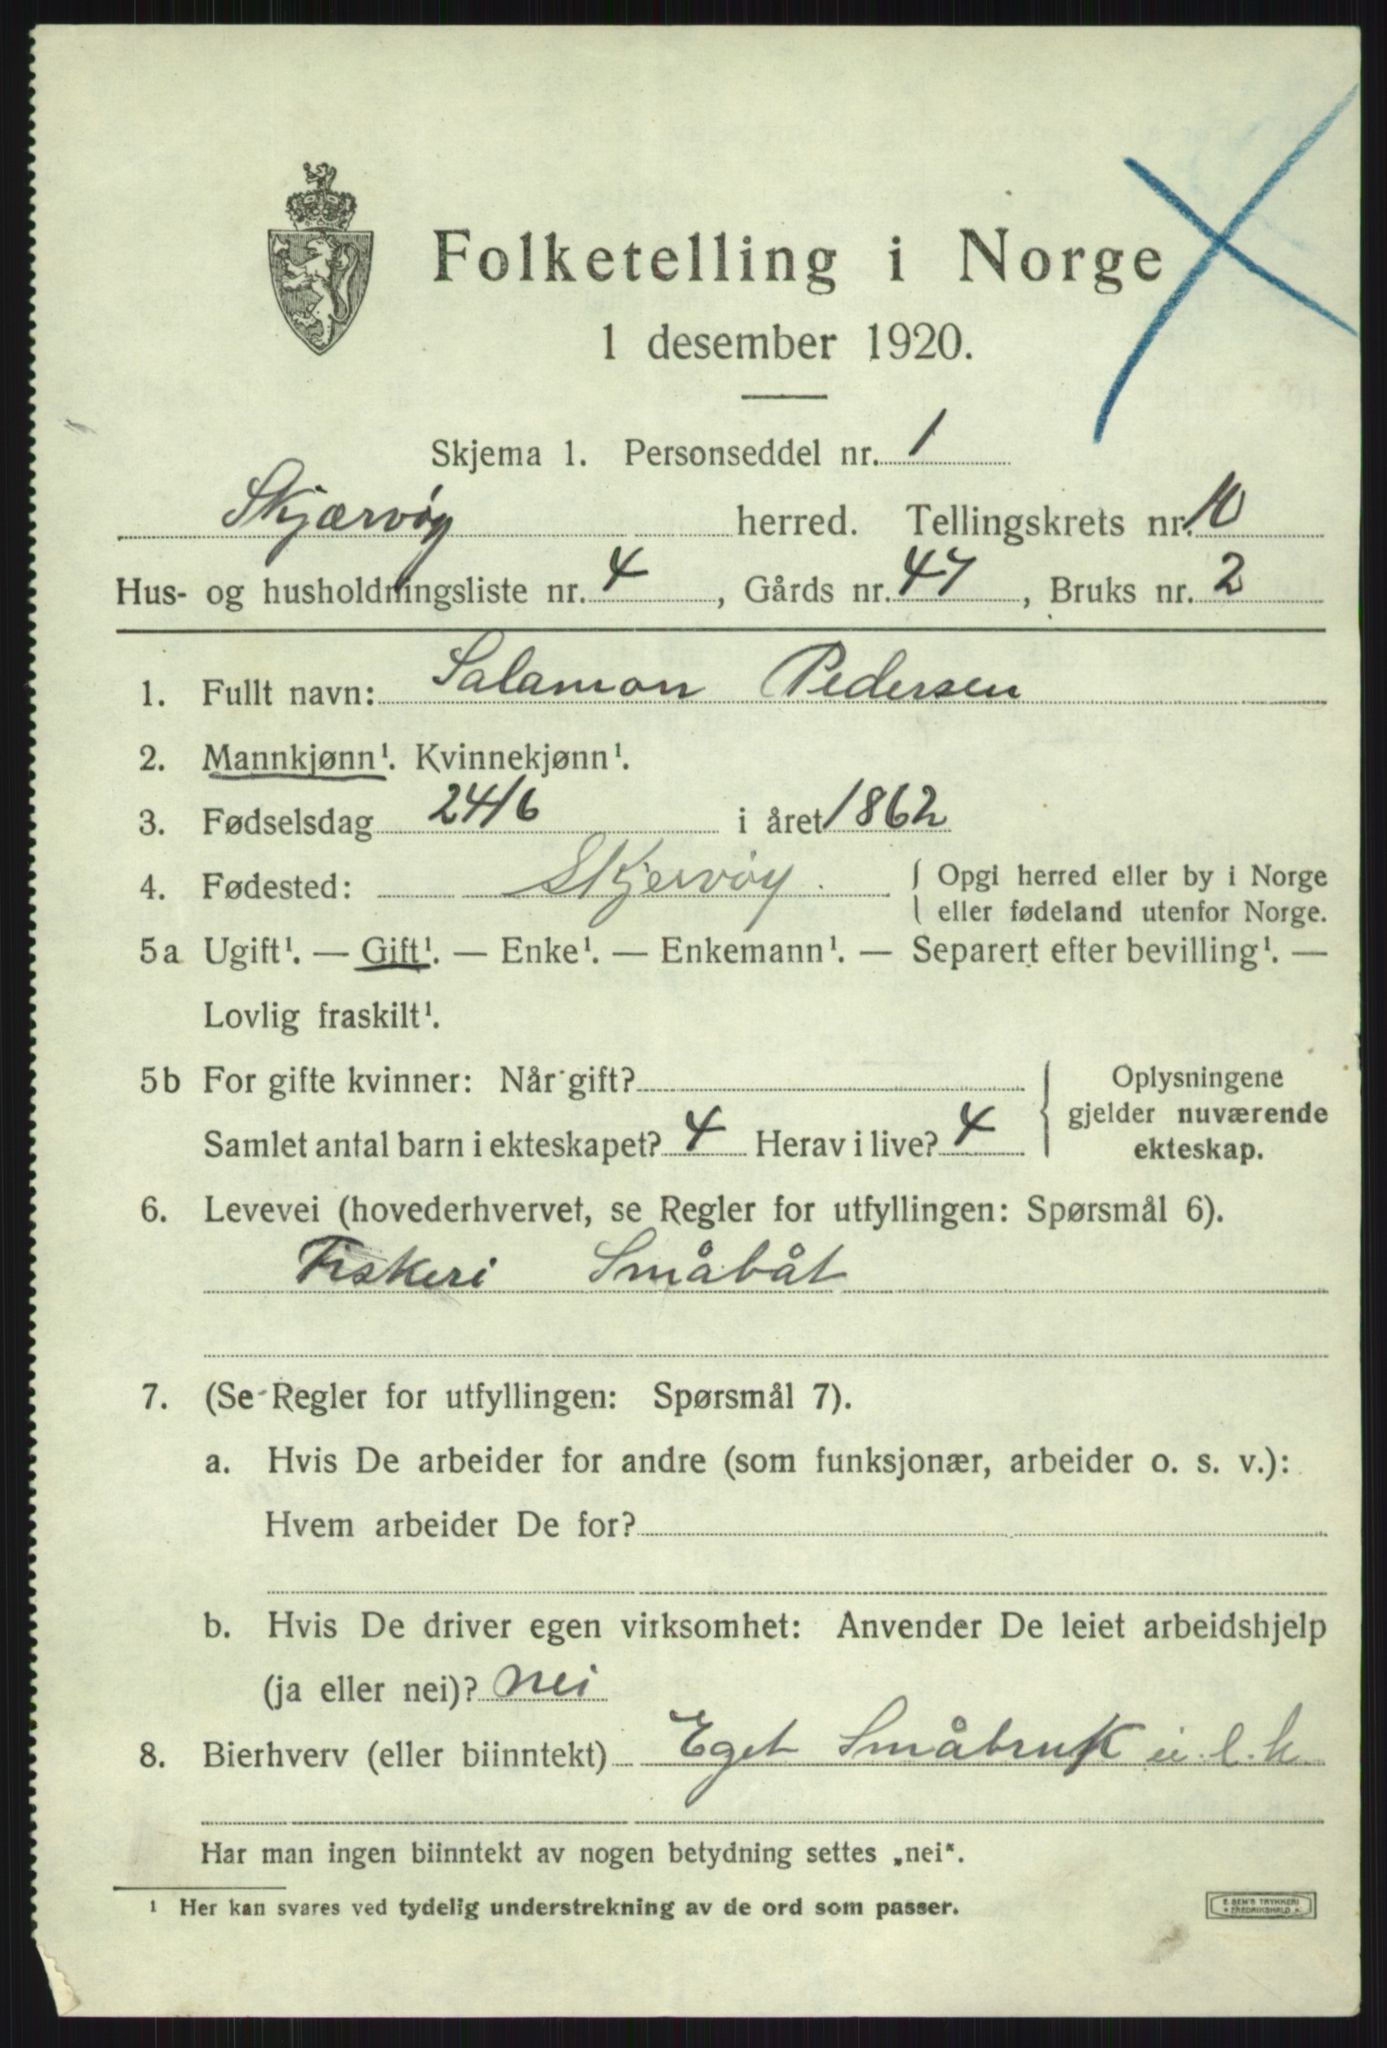 Folketelling i Norge
1 desember 1920.
Skjema 1. Personseddel nr. 1
Skjærvøy herred. Tellingskrets nr. 10
Hus- og husholdningsliste nr. 4, Gårds nr. 47, Bruks nr. 2
1. Fullt navn: Salamon Pedersen
2. Mannkjønn¹. Kvinnekjønn¹.
3. Fødselsdag 24/6 i året 1862
4. Fødested: Skjervøy. { Opgi herred eller by i Norge
eller fødeland utenfor Norge.
5a Ugift¹. — Gift¹. — Enke¹. — Enkemann¹. — Separert efter bevilling¹. —
Lovlig fraskilt¹.
5b For gifte kvinner: Når gift? { Oplysningene
gjelder nuværende
Samlet antal barn i ekteskapet? 4 Herav i live? 4 ekteskap.
6. Levevei (hovederhvervet, se Regler for utfyllingen: Spørsmål 6).
Fiskeri Småbåt
7. (Se Regler for utfyllingen: Spørsmål 7).
a. Hvis De arbeider for andre (som funksjonær, arbeider o. s. v.):
Hvem arbeider De for?
b. Hvis De driver egen virksomhet: Anvender De leiet arbeidshjelp
(ja eller nei)? nei
8. Bierhverv (eller biinntekt) Eget Småbruk u.l.h
Har man ingen biinntekt av nogen betydning settes „nei“.
¹ Her kan svares ved tydelig understrekning av de ord som passer.
E. SEM'S TRYKKERI
FREDRIKSHALD